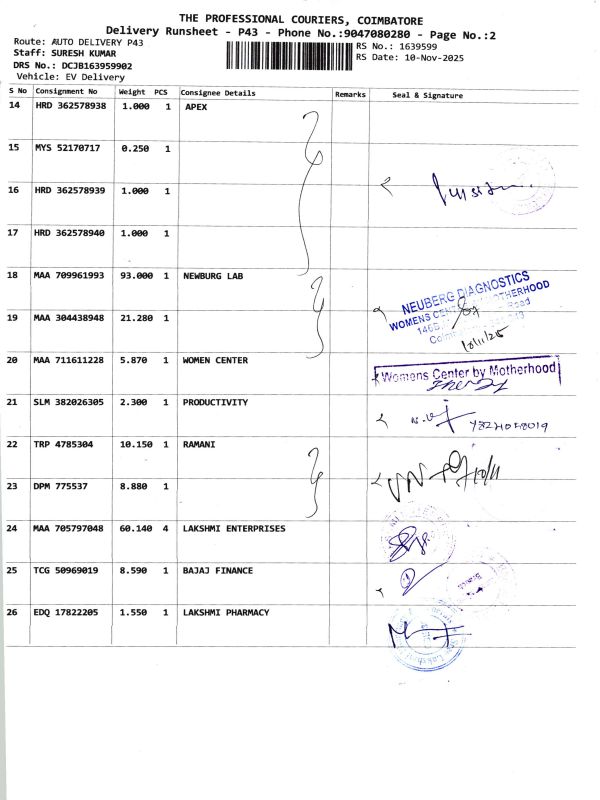 THE PROFESSIONAL COURIERS, COIMBATORE
Delivery Runsheet - P43 - Phone No.:9047080280 - Page No.:2
Route: AUTO DELIVERY P43
Staff: SURESH KUMAR
DRS No.: DCJB163959902
Vehicle: EV Delivery
RS No.: 1639599
RS Date: 10-Nov-2025
S No Consignment No Weight PCS Consignee Details Remarks Seal & Signature
14 HRD 362578938 1.000 1 APEX
15 MYS 52170717 0.250 1
16 HRD 362578939 1.000 1
17 HRD 362578940 1.000 1
18 MAA 709961993 93.000 1 NEWBURG LAB
NEUBERG DIAGNOSTICS
19 MAA 304438948 21.280 1
10/11/25
20 MAA 711611228 5.870 1 WOMEN CENTER
Womens Center by Motherhood
21 SLM 382026305 2.300 1 PRODUCTIVITY
22 TRP 4785304 10.150 1 RAMANI
10/11
23 DPM 775537 8.880 1
24 MAA 705797048 60.140 4 LAKSHMI ENTERPRISES
25 TCG 50969019 8.590 1 BAJAJ FINANCE
26 EDQ 17822205 1.550 1 LAKSHMI PHARMACY